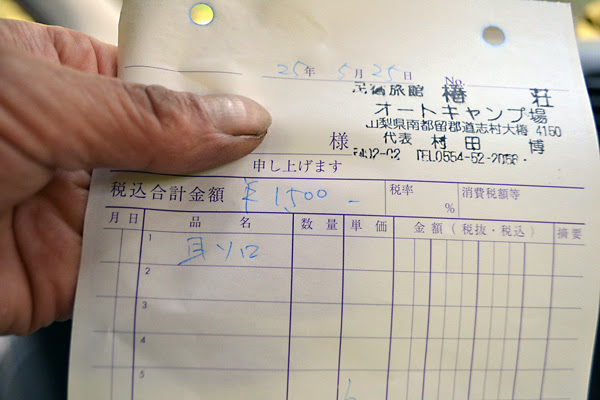 25年 5月 25日 No.
民宿旅館 椿荘
オートキャンプ場
山梨県南都留郡道志村大椿 4150
代表 村田 博
TEL0554-52-2058
様
申し上げます
税込合計金額 ¥1,500- 税率 % 消費税額等
月 日 品名 数量 単価 金額(税抜・税込) 摘要
1 ソロ
2
3
4
5